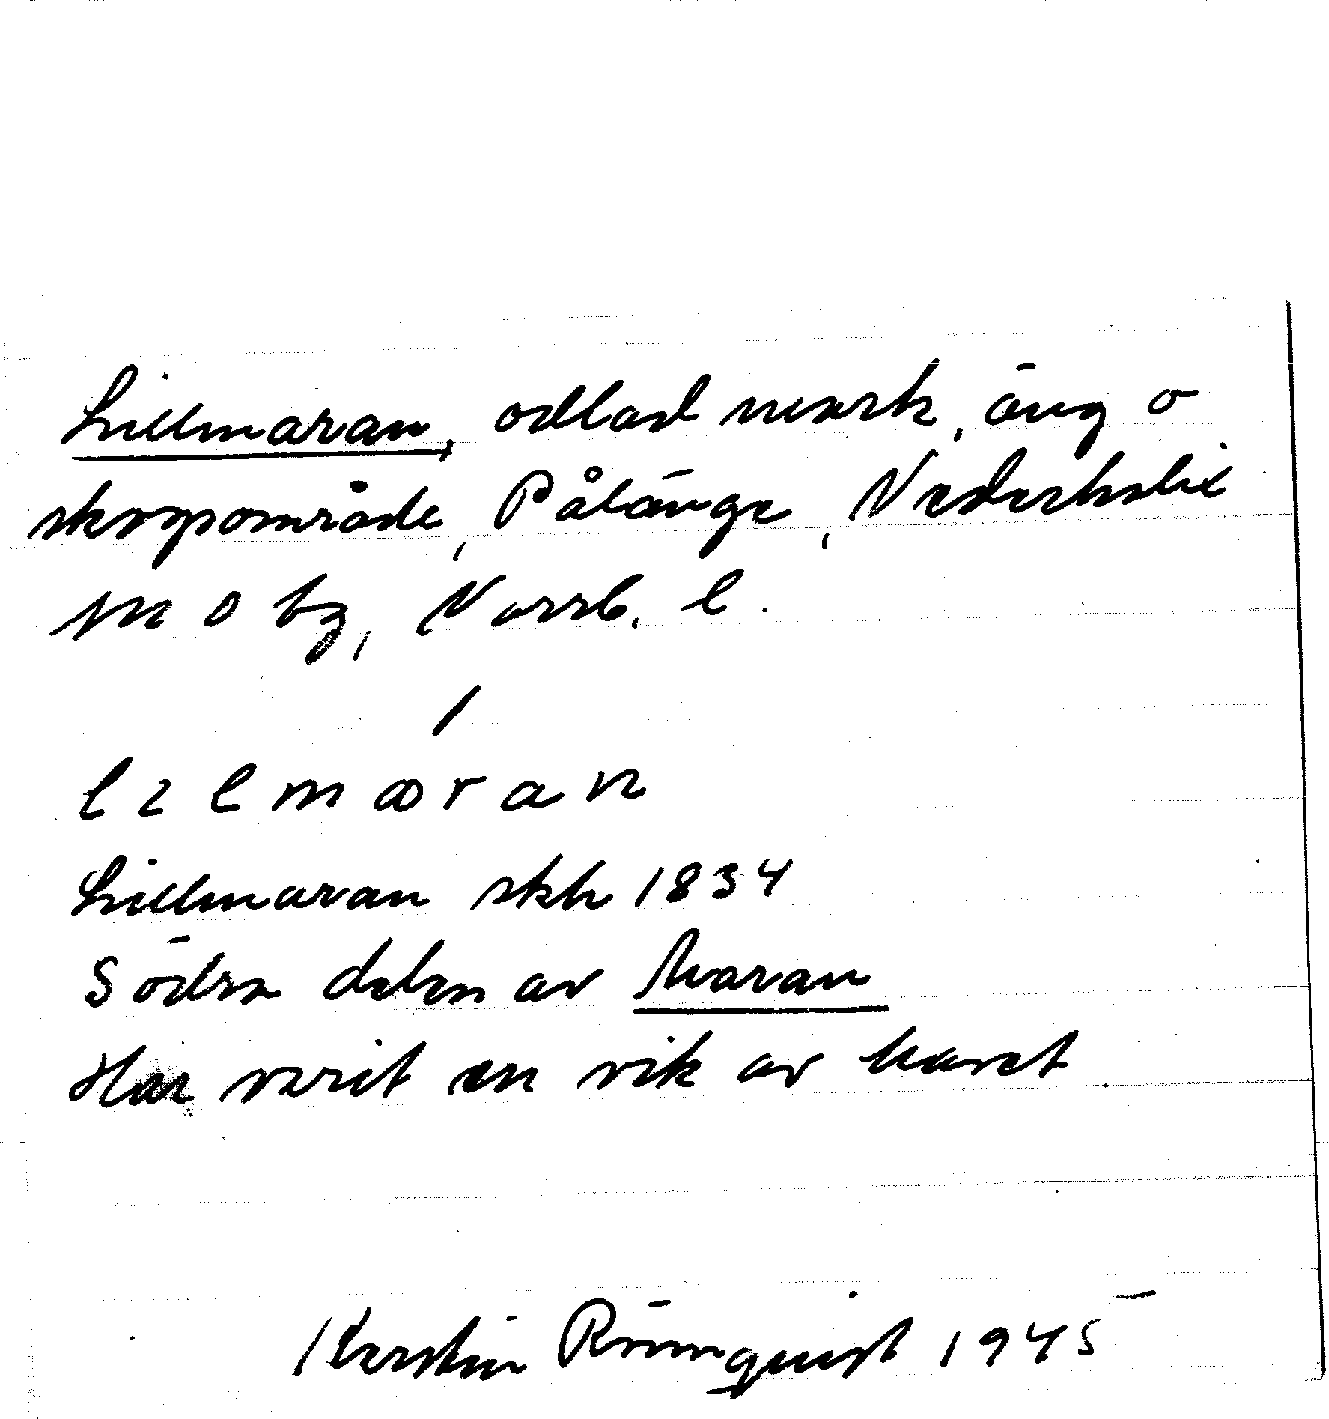 Lillmaran, odlad mark, äng o
skogsområde, Pålänge, Nederkalix
m o tg, Norrb. l.
l ɩ l m ꝏ r a n
Lillmaran skh 1834
Södra delen av Maran
Har varit en vik av havet
Kerstin Rönnquist 1945